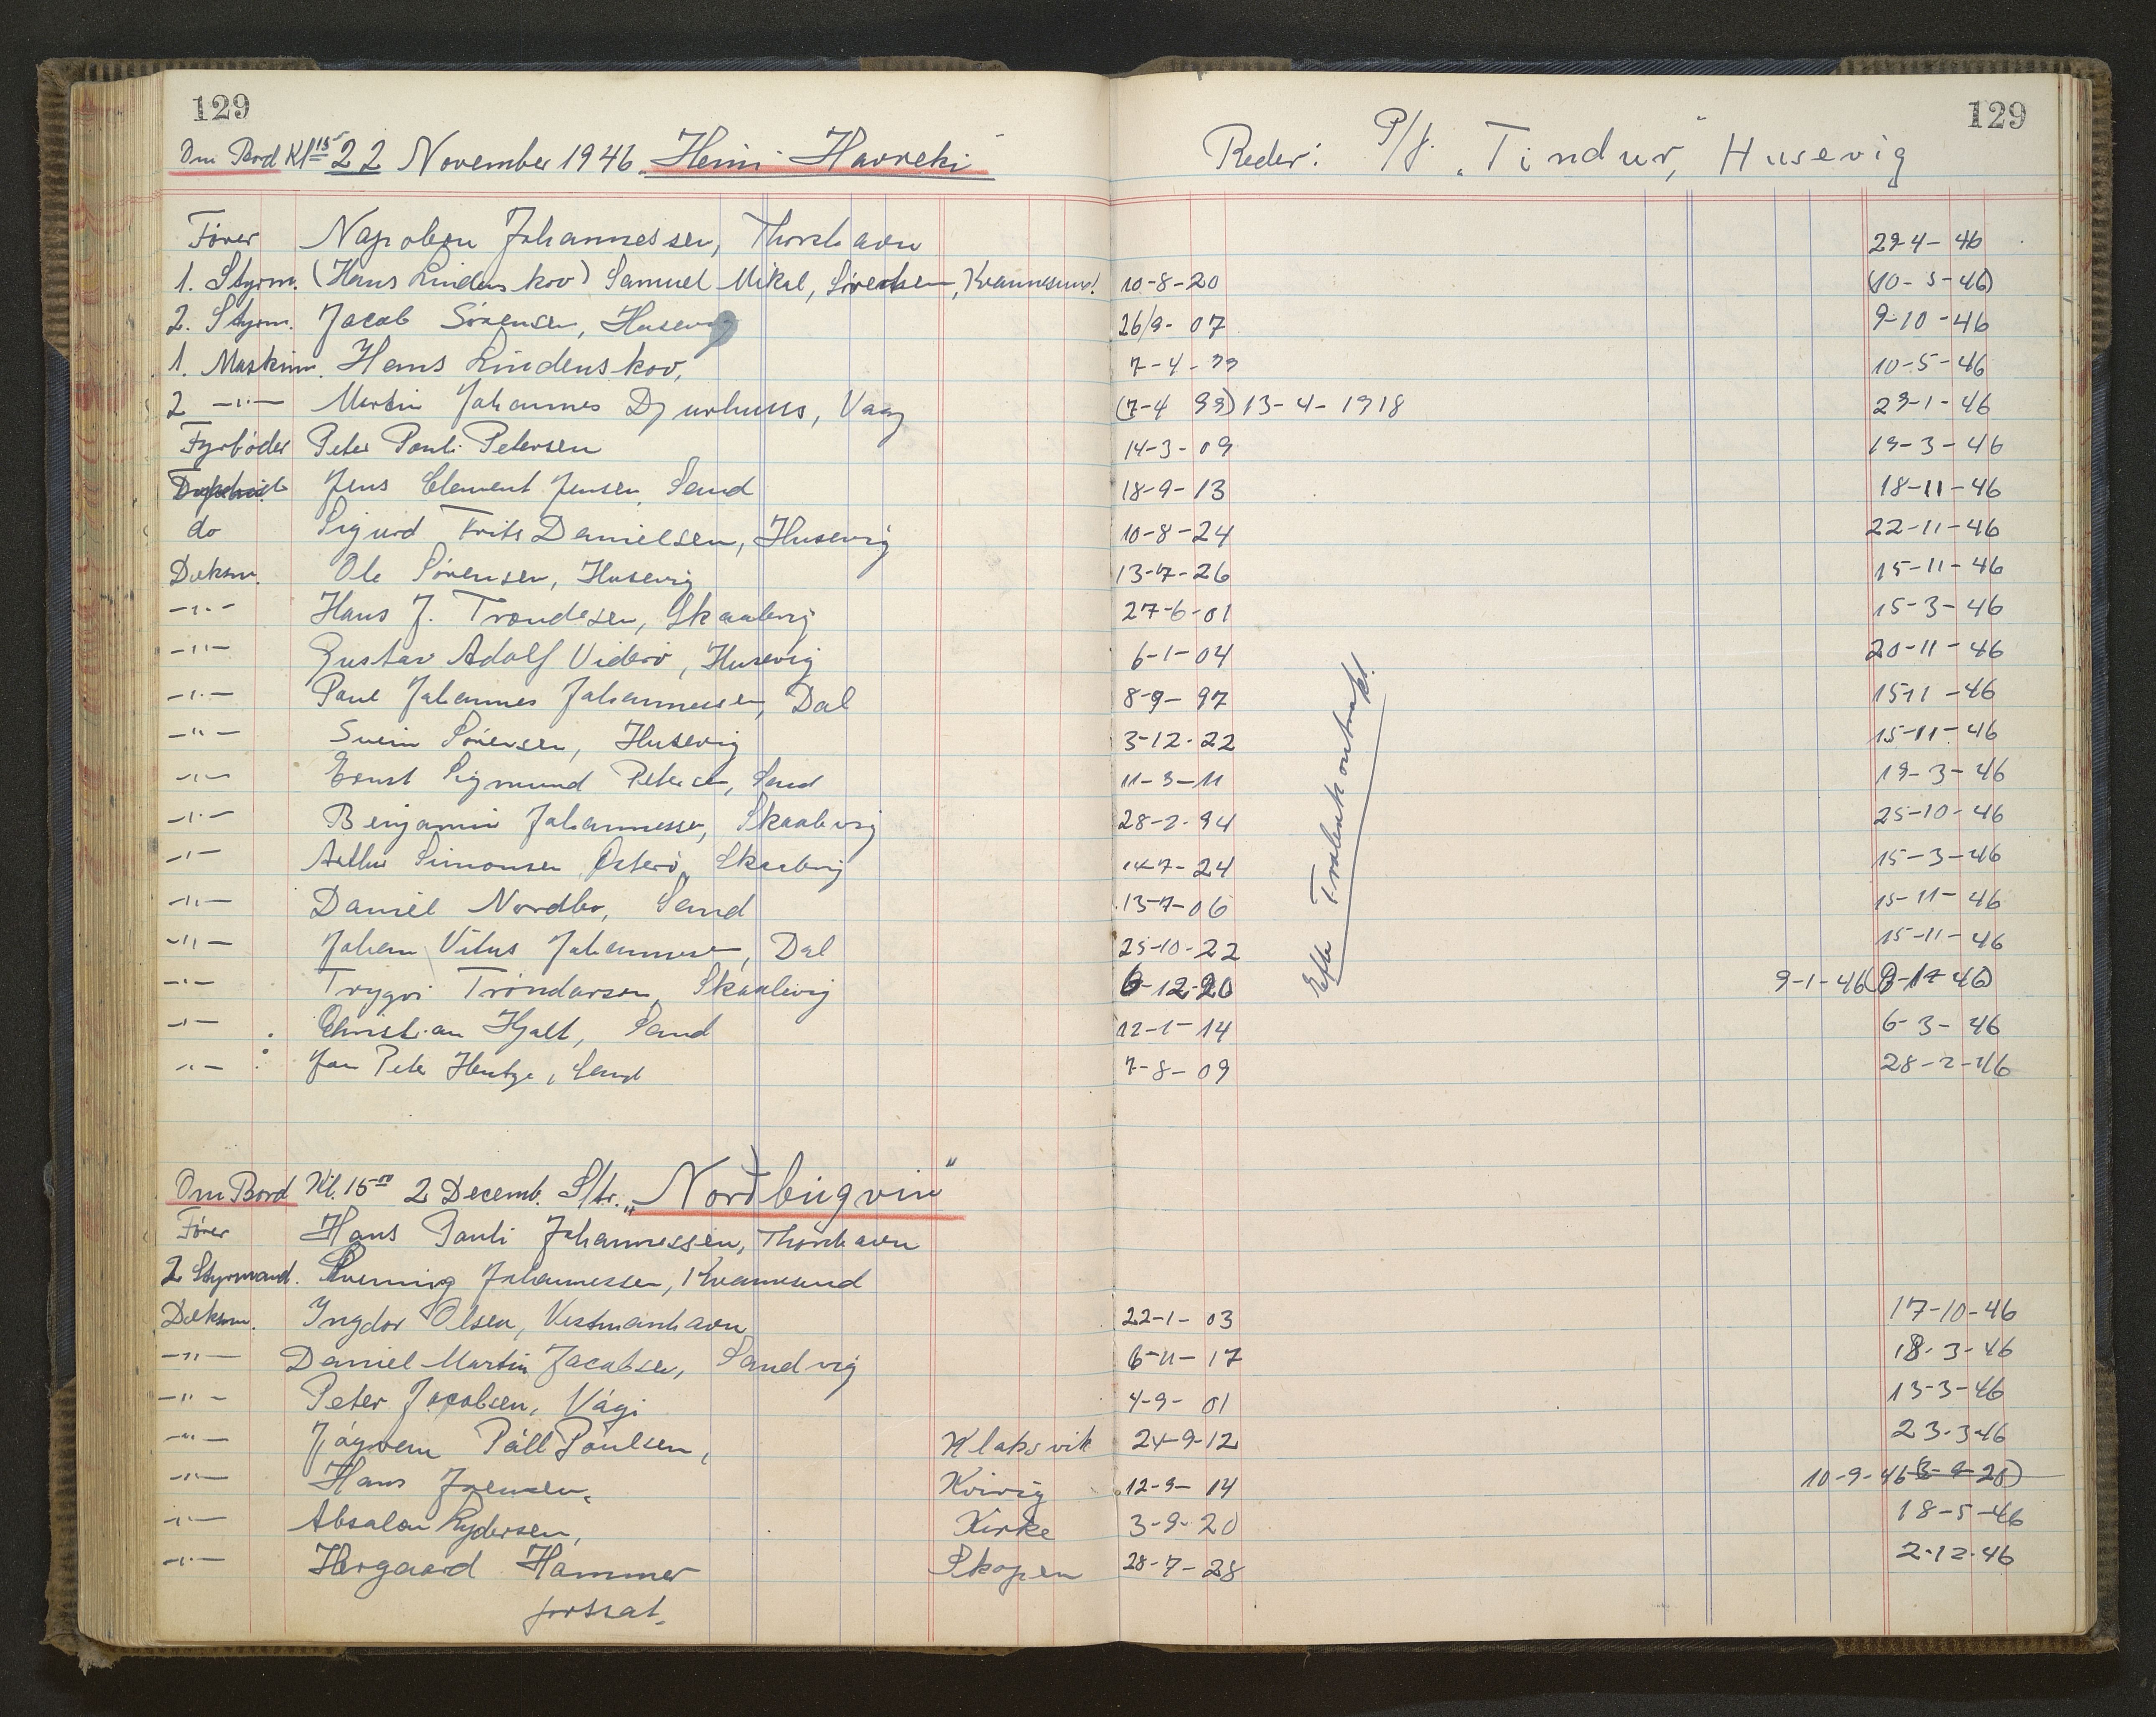 129 129
Om Bord Kl 15 22 November 1946. Heini Havreki Reder: P/f. "Tindur", Husevig
Fører Napoleon Johannessen, Thorshavn 29-4-46
1. Styrm. (Hans Lindenskov) Samuel Mikal, Sørensen, Kvannesund. 10-8-20 (10-5-46)
2. Styrm. Jacob Sørensen, Husevig 26/9-07 9-10-46
1. Maskinm. Hans Lindenskov, 7-4-99 10-5-46
2 -"- Martin Johannes Djurhuus, Vaag (7-4 99) 13-4-1918 29-1-46
Fyrbøder Peter Pauli Petersen 14-3-09 19-3-46
Jens Clement Jensen, Sand 18-9-13 18-11-46
do Sigurd Frits Danielsen, Husevig 10-8-24 22-11-46
Dæksm. Ole Sørensen, Husevig 13-7-26 15-11-46
-"- Hans J. Trondesen, Skaalevig 27-6-01 15-3-46
-"- Gustav Adolf Viderø, Husevig 6-1-04 20-11-46
-"- Poul Johannes Johannessen, Dal 8-9-97 15-11-46
-"- Svein Sørensen, Husevig 3-12-22 15-11-46
-"- Ernst Sigmund Petersen, Sand 11-3-11 19-3-46
-"- Benjamin Johannessen, Skaalevig 28-2-94 25-10-46
-"- Arthur Simonsen Østerø, Skaalevig 14-7-24 15-3-46
-"- Daniel Nordbo, Sand 13-7-06 15-11-46
-"- Johan Vitus Johannesen, Dal 25-10-22 15-11-46
-"- Trygvi Tróndarson, Skaalevig 6-12-20 9-1-46
-"- Christian Hjalt, Sand 12-1-14 6-3-46
-"- Jon Peter Hentze, Sand 7-8-09 28-2-46
Efter Trolenkontrakt.
Om Bord Kl. 15 00 2 Decemb. S/tr. "Norðbúgvin"
Fører Hans Pauli Johannessen, Thorshavn
2 Styrmand. Svenning Johannessen, Kvannesund
Dæksm. Yngdor Olsen, Vestmanhavn 22-1-03 17-10-46
-"- Daniel Martin Jacobsen, Sandvig 6-11-17 18-3-46
-"- Peter Jacobsen, Vági 4-9-01 13-3-46
-"- Jógvan Páll Poulsen, Klaksvik 24-9-12 23-3-46
-"- Hans Joensen, Kvivig 12-9-14 10-9-46 (3-9-20)
-"- Absalon Lydersen, Kirke 3-9-20 18-5-46
-"- Hergaard Hammer Skopen 28-7-28 2-12-46
fortsat.